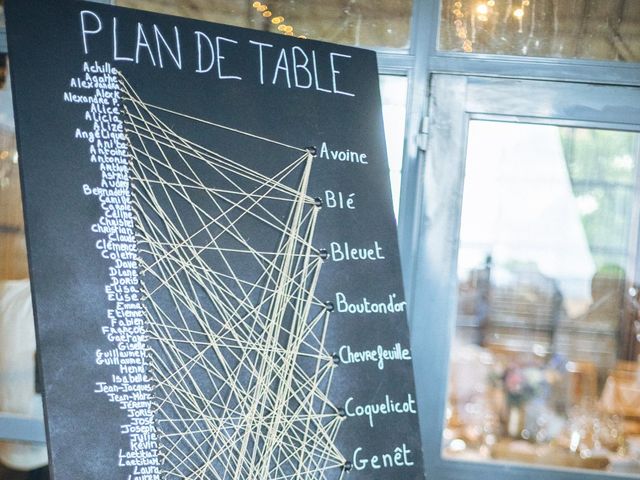 PLAN DE TABLE
Achille
Agathe
Alexandra
Alexandre P.
Alice
Alicia
Alizé
Angélique
Anita
Antoine
Antonin
Astrid
Audrey
Bernadette
Camille
Carole
Céline
Christel
Christian
Claude
Clémence
Colette
Dave
Diane
Doris
Elisa
Elise
Emma
Etienne
Fabien
François
Gaetane
Giselle
Guillaume H.
Guillaume L.
Henri
Isabelle
Jean-Jacques
Jean-Marc
Jérémy
Joris
José
Joseph
Julie
Kevin
Laetitia J.
Laetitia M.
Laura
Avoine
Blé
Bleuet
Bouton d'or
Chèvrefeuille
Coquelicot
Genêt